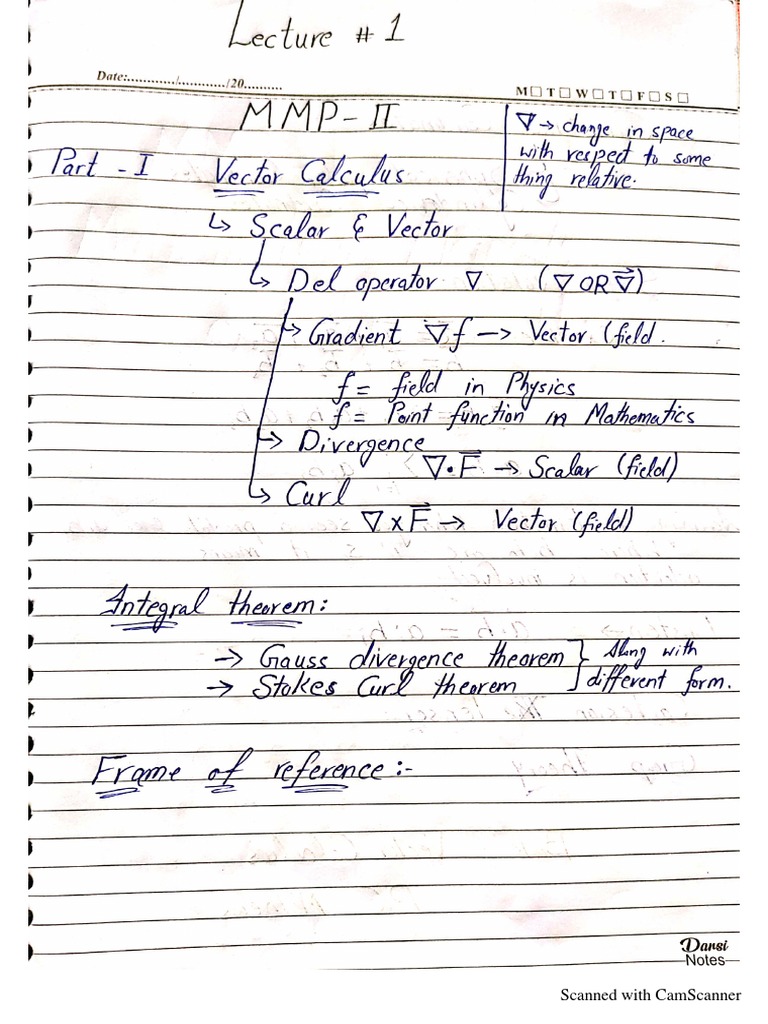 Lecture # 1
Date:............/............/20..........
M□ T□ W□ T□ F□ S□
MMP-II
∇ → change in space
with respect to some
thing relative.
Part - I Vector Calculus
↳ Scalar & Vector
↳ Del operator ∇ (∇ OR ∇⃗)
→ Gradient ∇f → Vector (field.
f = field in Physics
f = Point function in Mathematics
→ Divergence
∇·F⃗ → Scalar (field)
↳ Curl
∇×F⃗ → Vector (field)
Integral theorem:
→ Gauss divergence theorem } Along with
→ Stokes Curl theorem } different form.
Frame of reference:-
Dansi
Notes
Scanned with CamScanner